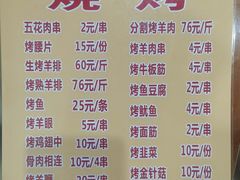 烧 烤
五花肉串 2元/串
烤腰片 15元/份
生烤羊排 60元/斤
烤熟羊排 76元/斤
烤鱼 25元/条
烤羊眼 5元/串
烤鸡翅中 10元/串
骨肉相连 10元/4串
20元/串
分割烤羊肉 76元/斤
烤羊肉串 4元/串
烤牛板筋 4元/串
烤鱼豆腐 2元/串
烤鱿鱼 4元/串
烤面筋 2元/串
烤韭菜 10元/份
烤金针菇 10元/份